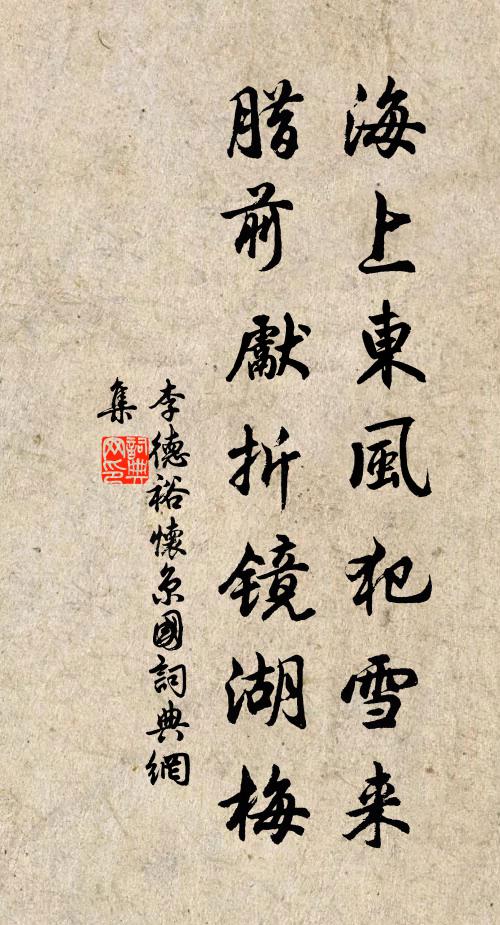 海上東風犯雪来
腊前獻折鏡湖梅
李德裕懷京國詞典網
集
詞典
网印